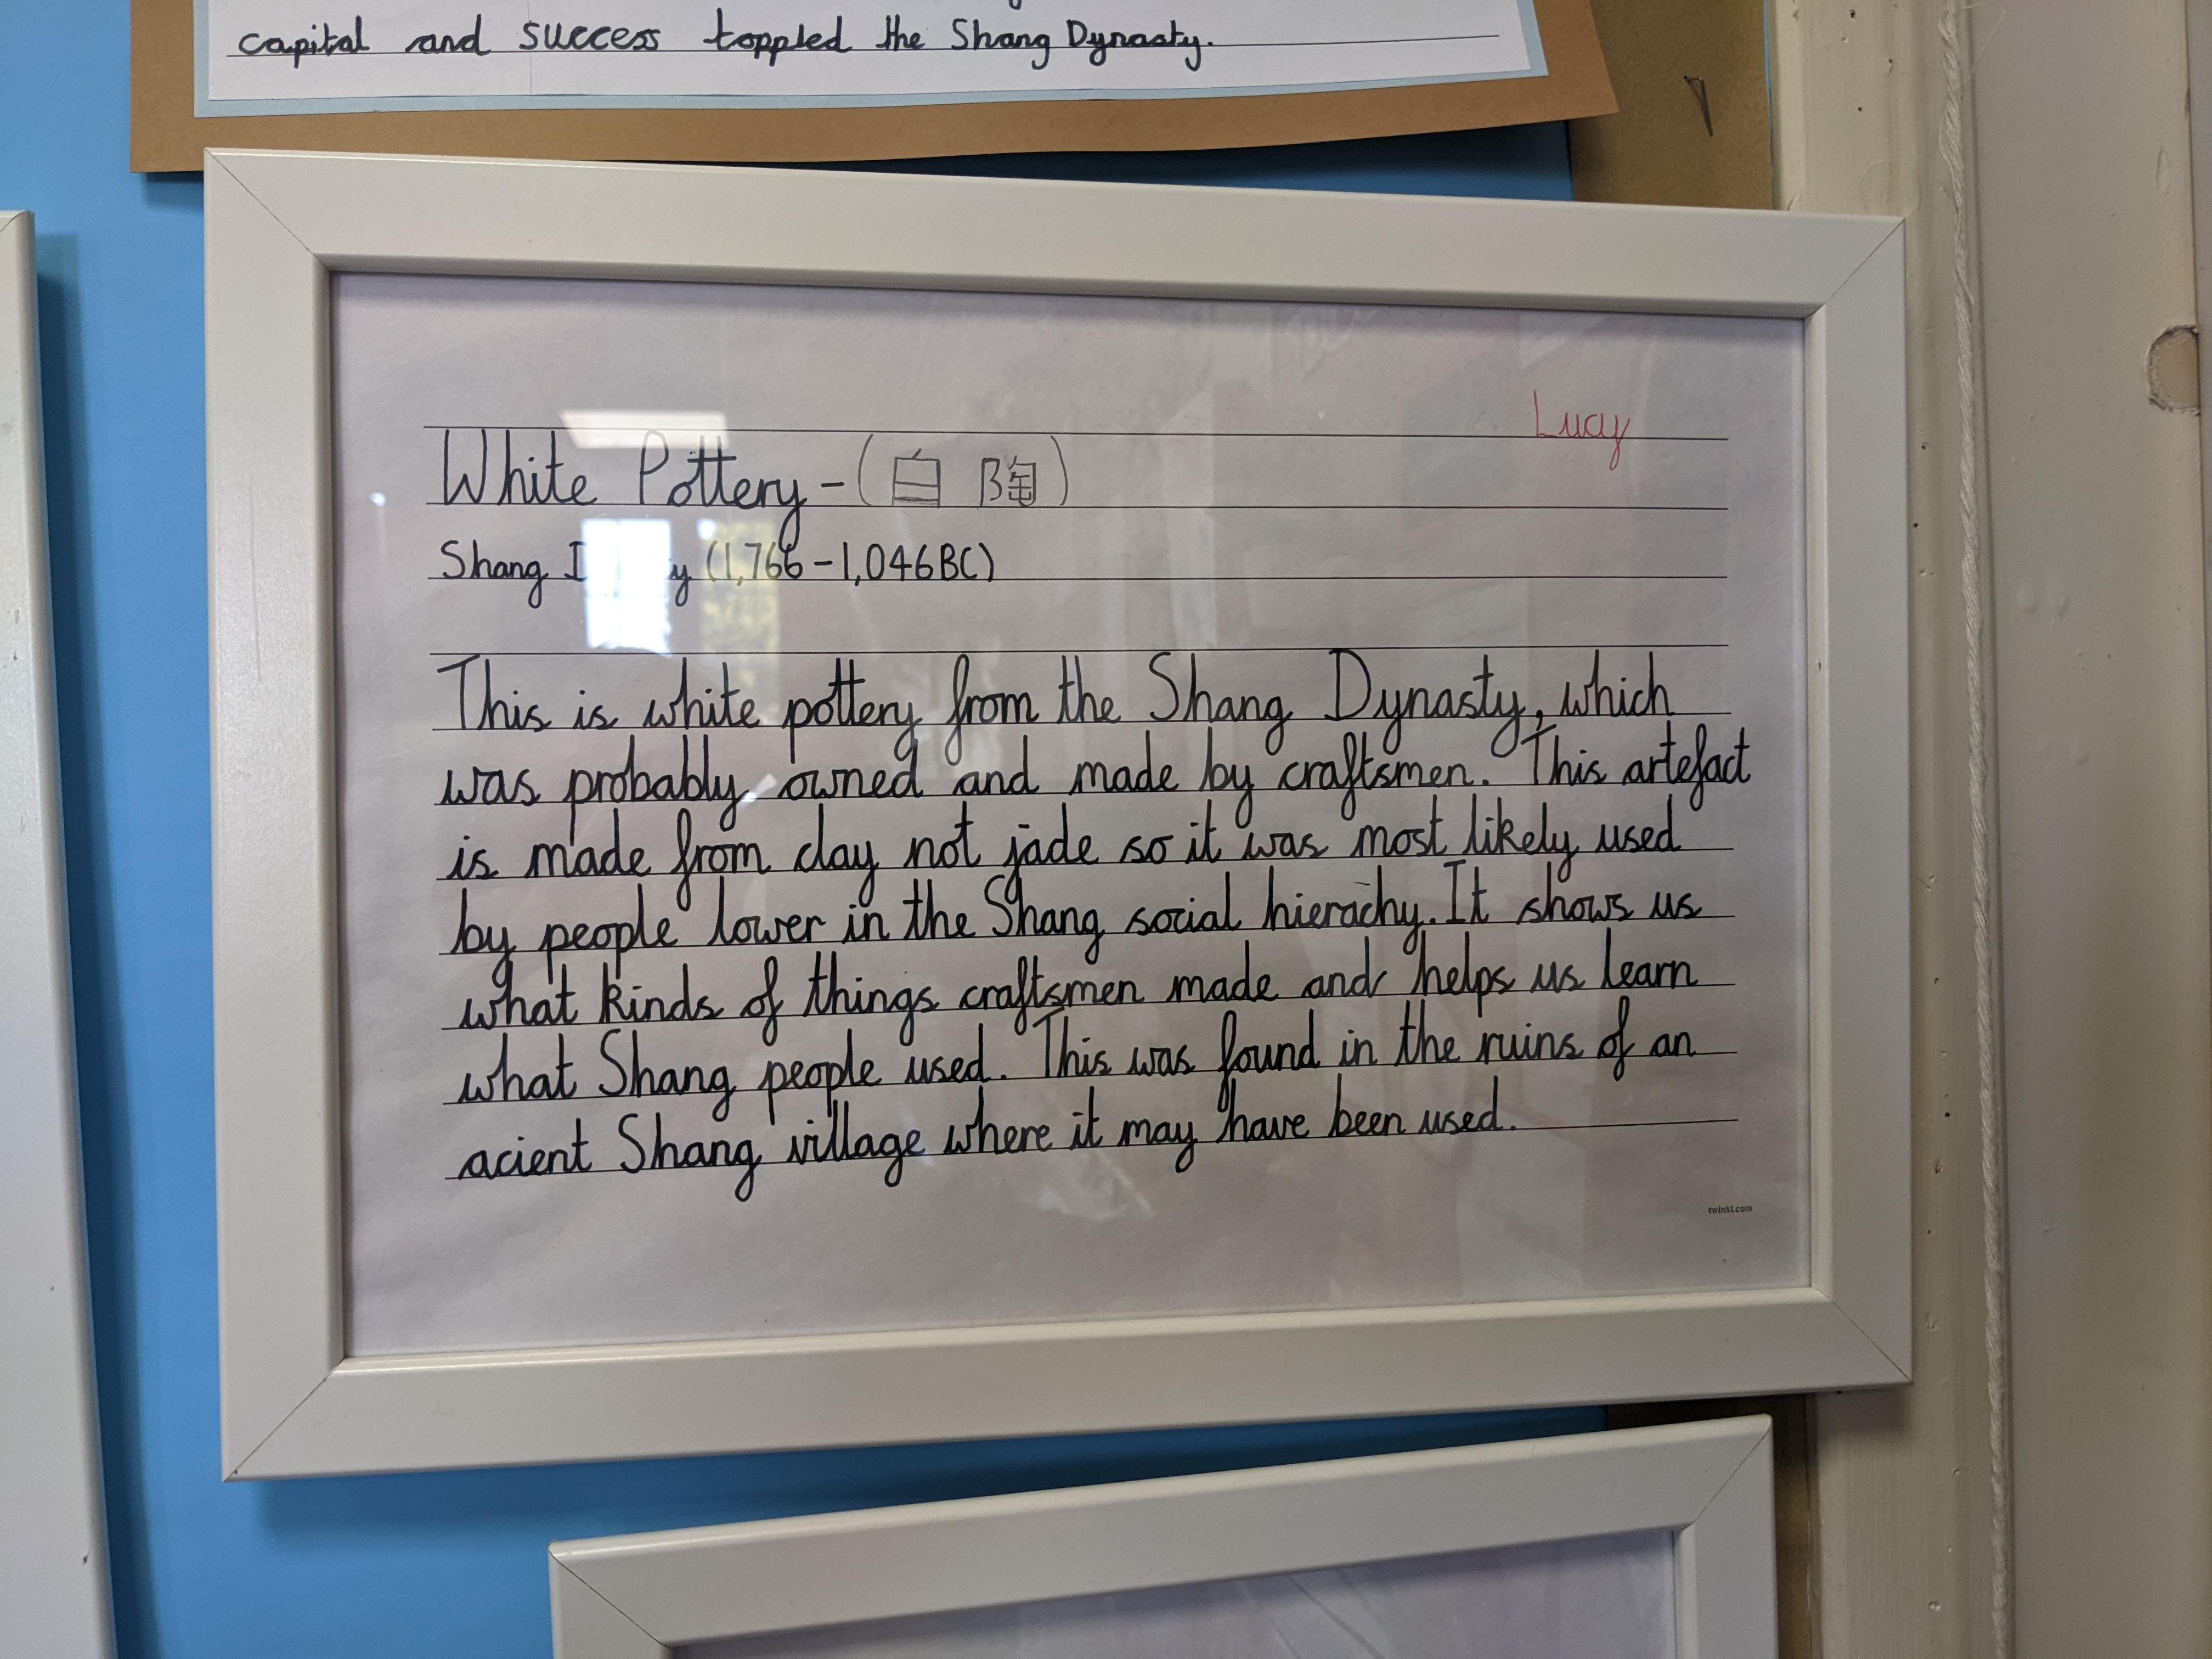 capital and success toppled the Shang Dynasty.
Lucy
White Pottery - (白 陶)
Shang (1,766 - 1,046BC)
This is white pottery from the Shang Dynasty, which
was probably owned and made by craftsmen. This artefact
is made from clay not jade so it was most likely used
by people lower in the Shang social hierachy. It shows us
what kinds of things craftsmen made and helps us learn
what Shang people used. This was found in the ruins of an
acient Shang village where it may have been used.
twinkl.com